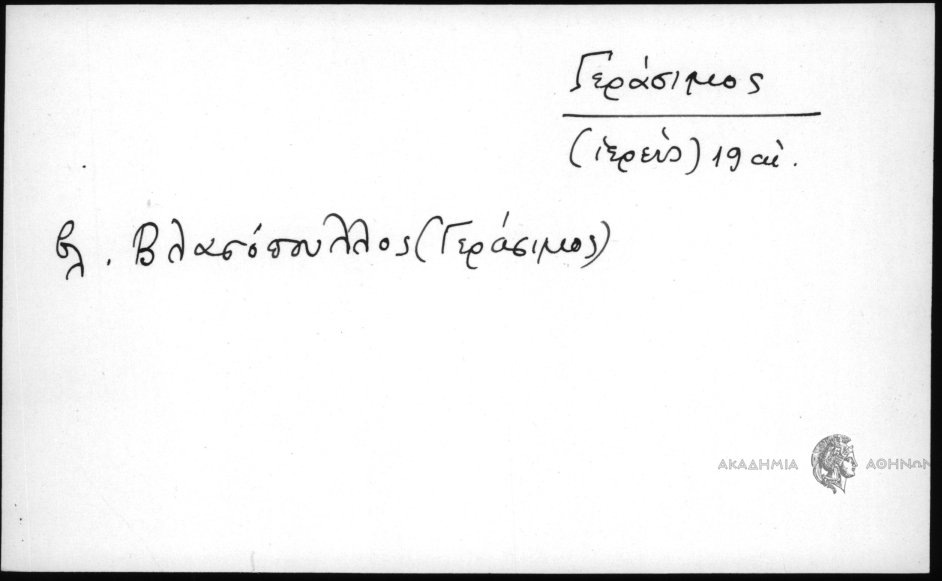 Γεράσιμος
(ἱερεὺς) 19 αἰ.
βλ. Βλασόπουλλος (Γεράσιμος)
ΑΚΑΔΗΜΙΑ ΑΘΗΝΩΝ